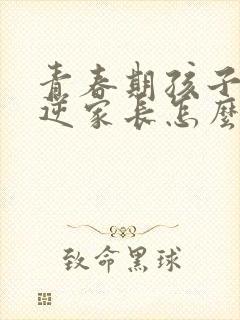 青春期孩子
逆家长怎麼
致命黑球